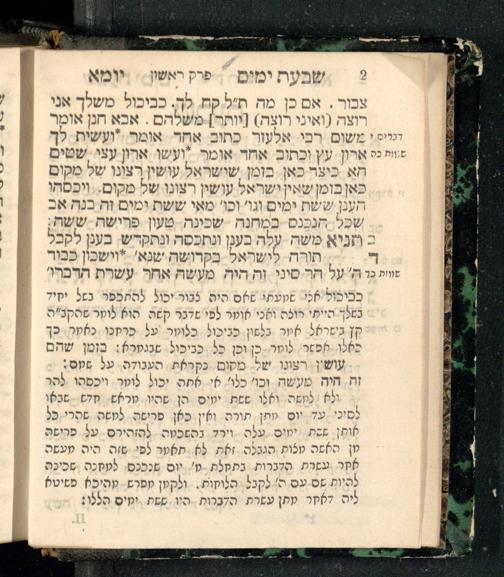 2 שבעת ימים פרק ראשון יומא
צבור. אם כן מה ת״ל קח לך. כביכול משלך אני
רוצה (ואיני רוצה) [יותר] משלהם. אבא חנן אומר
דברים י משום רבי אלעזר כתוב אחד אומר *ועשית לך
שמות כה ארון עץ וכתוב אחד אומר *ועשו ארון עצי שטים
הא כיצד כאן בזמן שישראל עושין רצונו של מקום
כאן בזמן שאין ישראל עושין רצונו של מקום. ויכסהו
הענן ששת ימים וגו׳ וכו׳ מאי ששת ימים זה בנה אב
שכל הנכנס במחנה שכינה טעון פרישה ששה:
ב ותניא משה עלה בענן ונתכסה ונתקדש בענן לקבל
ד תורה לישראל בקדושה שנא׳ *וישכון כבוד
שמות כד ה׳ על הר סיני זה היה מעשה אחר עשרת הדברו׳
כביכול אני שמעתי שאם היה גבור יכול להתכפר בשל יחיד
בשלך הייתי רוצה ואני אומר לפי שדבר קשה הוא לומר שהקב״ה
קץ בישראל אמר בלשון כביכול כלומר על כרחנו נאמר כך
כאלו אפשר לומר כן וכן כל כביכול שבגמרא: בזמן שהם
עושין רצונו של מקום נקראת העבודה על שמם:
זה היה מעשה וכו׳ כלו׳ אי אתה יכול לומר ויכסהו להר
ולא למשה ואלו ששת ימים הן שהיו מראש חדש שבאו
לסיני עד יום מתן תורה ואין כאן פרישה למשה שהרי כל
אותן ששת ימים עלה וירד בהשכמה להזהירם על פרישה
מן האשה מלות הגבלה זאת לא תאמר לפי שזה היה מעשה
אחר עשרת הדברות בתחלת מ׳ יום שנכנס למחנה שכינה
להיות שם עם ה׳ לקבל הלוחות. ולקמן מפרש מהיכא פשיטא
ליה דאחר מתן עשרת הדברות היו ששת ימים הללו:
II.